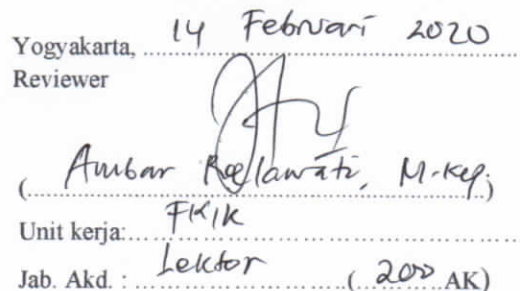 Yogyakarta, 14 Februari 2020
Reviewer
( Ambar Relawati, M.Kep )
Unit kerja: FKIK
Jab. Akd. : Lektor ( 200 AK)